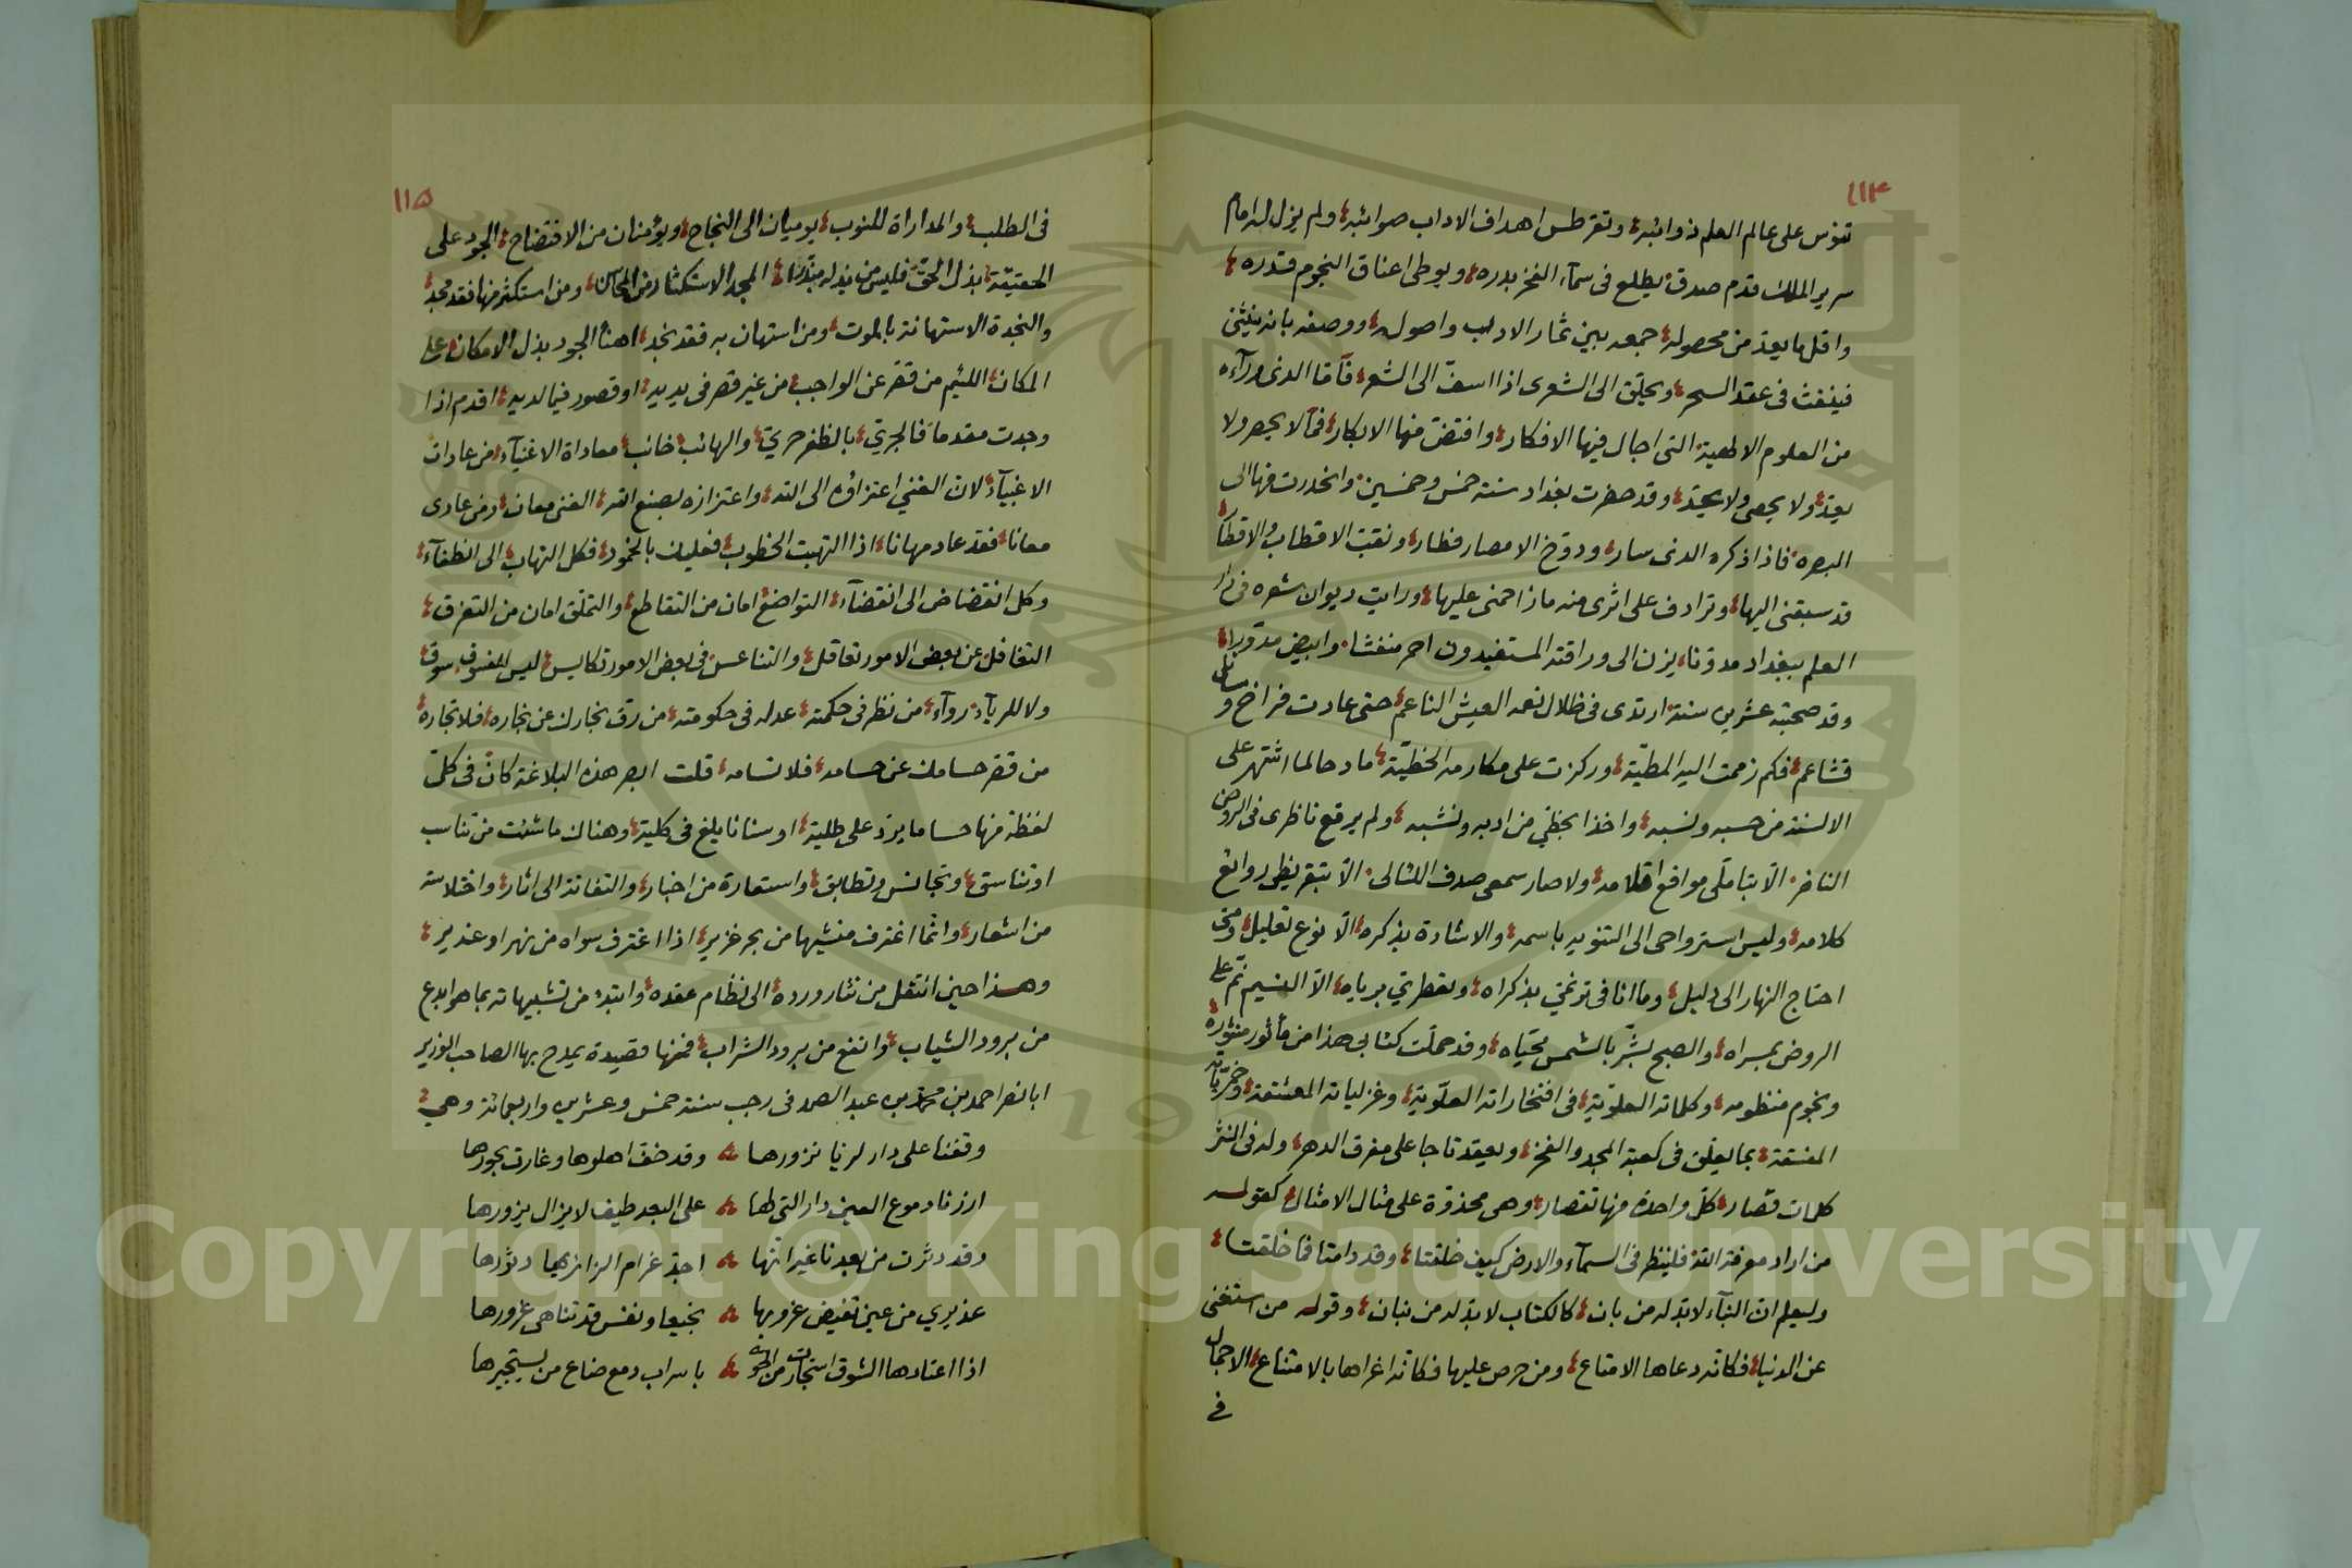 ١١٤
تنوس على عالم العلم ذوائبه وتقرطس اهداف الاداب صوائبه ولم يزل له امام
سرير الملك قدم صدق يطلع فى سمآء الفخر بدره ويوطى اعناق النجوم قدره
واقل ما يعد من محصوله جمعه بين ثمار الادب واصوله ووصفه بانه ينثنى
فينفث فى عقد السحر ويحلق الى الشعرى اذا اسف الى الشعر فآما الذى ورآءه
من العلوم الالهية التى اجال فيها الافكار وافتض منها الابكار فمما لا يحصر ولا
يعد ولا يحصى ولا يحد وقد حضرت بغداد سنة خمس وخمسين وانحدرت منها الى
البصره فاذا ذكره الذى سار ودوخ الامصار فطار ونقب الاقطاب والاقطار
قد سبقنى اليها وترادف على اثرى منه مازاحمنى عليها ورايت ديوان شعره فى دار
العلم ببغداد مدونا يزن الى وراقته المستفيدون احمر منقشا وابيض مدورا
وقد صحبته عشرين سنة ارتدى فى ظلال نعمه العيش الناعم حتى عادت فراخ وسائلى
قشاعم فكم زممت اليه المطية وركزت على مكارمه الخطية مادحا لما اشتهر على
الالسنة من حسبه ونسبه واخذا بحظي من ادبه ونشبه ولم يرقع ناظرى فى الروض
الناضر الا بتاملى مواقع اقلامه ولا صار سمعى صدف اللئالى الا بتقريظى روائع
كلامه وليس استرواحى الى التنويه باسمه والاشادة بذكره الا نوع تعليل ومتى
احتاج النهار الى دليل وما انا فى ترنمي بذكراه وتعطري برياه الا النسيم نم على
الروض بمسراه والصبح بشر بالشمس محياه وقد حملت كتابى هذا من مأثور منثوره
ونجوم منظومه وكلماته العلوية فى افتخاراته العلوية وغزلياته المعشقة وخمرياته
المفسقة بما يعلق فى كعبة المجد والفخر ويعقد تاجا على مفرق الدهر وله فى النثر
كلمات قصار كل واحدة منها تقصار وهى محذوة على مثال الامثال كقوله
من اراد معرفة الله فلينظر فى السمآء والارض كيف خلقتا وقد دامتا فما خلقتا
وليعلم ان البنآء لا بد له من بان كالكتاب لا بد له من بنان وقوله من استغنى
عن الدنيا فكانه دعاها الامتاع ومن حرص عليها فكانه اغراها بالامتناع الاجمال
فى
١١٥
فى الطلب والمداراة للنوب يوميان الى النجاح ويؤمنان من الافتضاح الجود على
الحقيقة بذل الحق فليس من بذله مبذرا المجد الاستكثار من المحاسن ومن استكثر منها فقد مجد
والنجدة الاستهانة بالموت ومن استهان به فقد نجد اهنأ الجود بذل الامكان على
المكان اللئيم من قصر عن الواجب من غير قصر فى يديه او قصور فيما لديه اقدم اذا
وجدت مقدما فالجري بالظفر حري والهائب خائب معاداة الاغنيآء من عادات
الاغبيآء لان الغني اعتزاؤه الى الله واعتزازه بصنع الله الغنى معان ومن عادى
معانا فقد عاد مهانا اذا التهبت الخطوب فعليك بالخمود فكل التهاب الى انطفآء
وكل انقضاض الى انقضآء التواضع امان من التقاطع والتملق امان من التفرق
التغافل عن بعض الامور تعاقل والتناعس فى بعض الامور تكايس ليس للفسوق سوق
ولا للريآء روآء من نظر فى حكمته عدله فى حكومته من رق نجارك عن نجاره فلا تجاره
من قصر حسامك عن حسامه فلا تسامه قلت ابصر هذه البلاغة كان فى كل
لفظة منها حساما يرد على طلية او سنانا يلغ فى كلية وهناك ما شئت من تناسب
او تناسق وتجانس وتطابق واستعارة من اخبار والتفاتة الى اثار واختلاسة
من اشعار وانما اغترف منشيها من بحر غزير اذا اغترف سواه من نهر او غدير
وهذا حين انتقل من نثار ورده الى نظام عقده وابتدء من تشبيهاته بما هو ابدع
من برود الشباب وانفع من برود الشراب فمنها قصيدة يمدح بها الصاحب الوزير
ابا نصر احمد بن محمد بن عبد الصمد فى رجب سنة خمس وعشرين واربعمائة وهى
وقفنا على دار لريا نزورها وقد خف اهلوها وغارت بحورها
ارزنا دموع العين دار التى لها على البعد طيف لا يزال يزورها
وقد دثرت من بعدنا غير انها اجد غرام الزائريها دثورها
عذيري من عين تفيض غروبها نجيعا ونفس قد تناهى غرورها
اذا اعتادها الشوق استجارت من الجوى باسراب دمع ضاع من يستجيرها
Copyright © King Saud University
1957